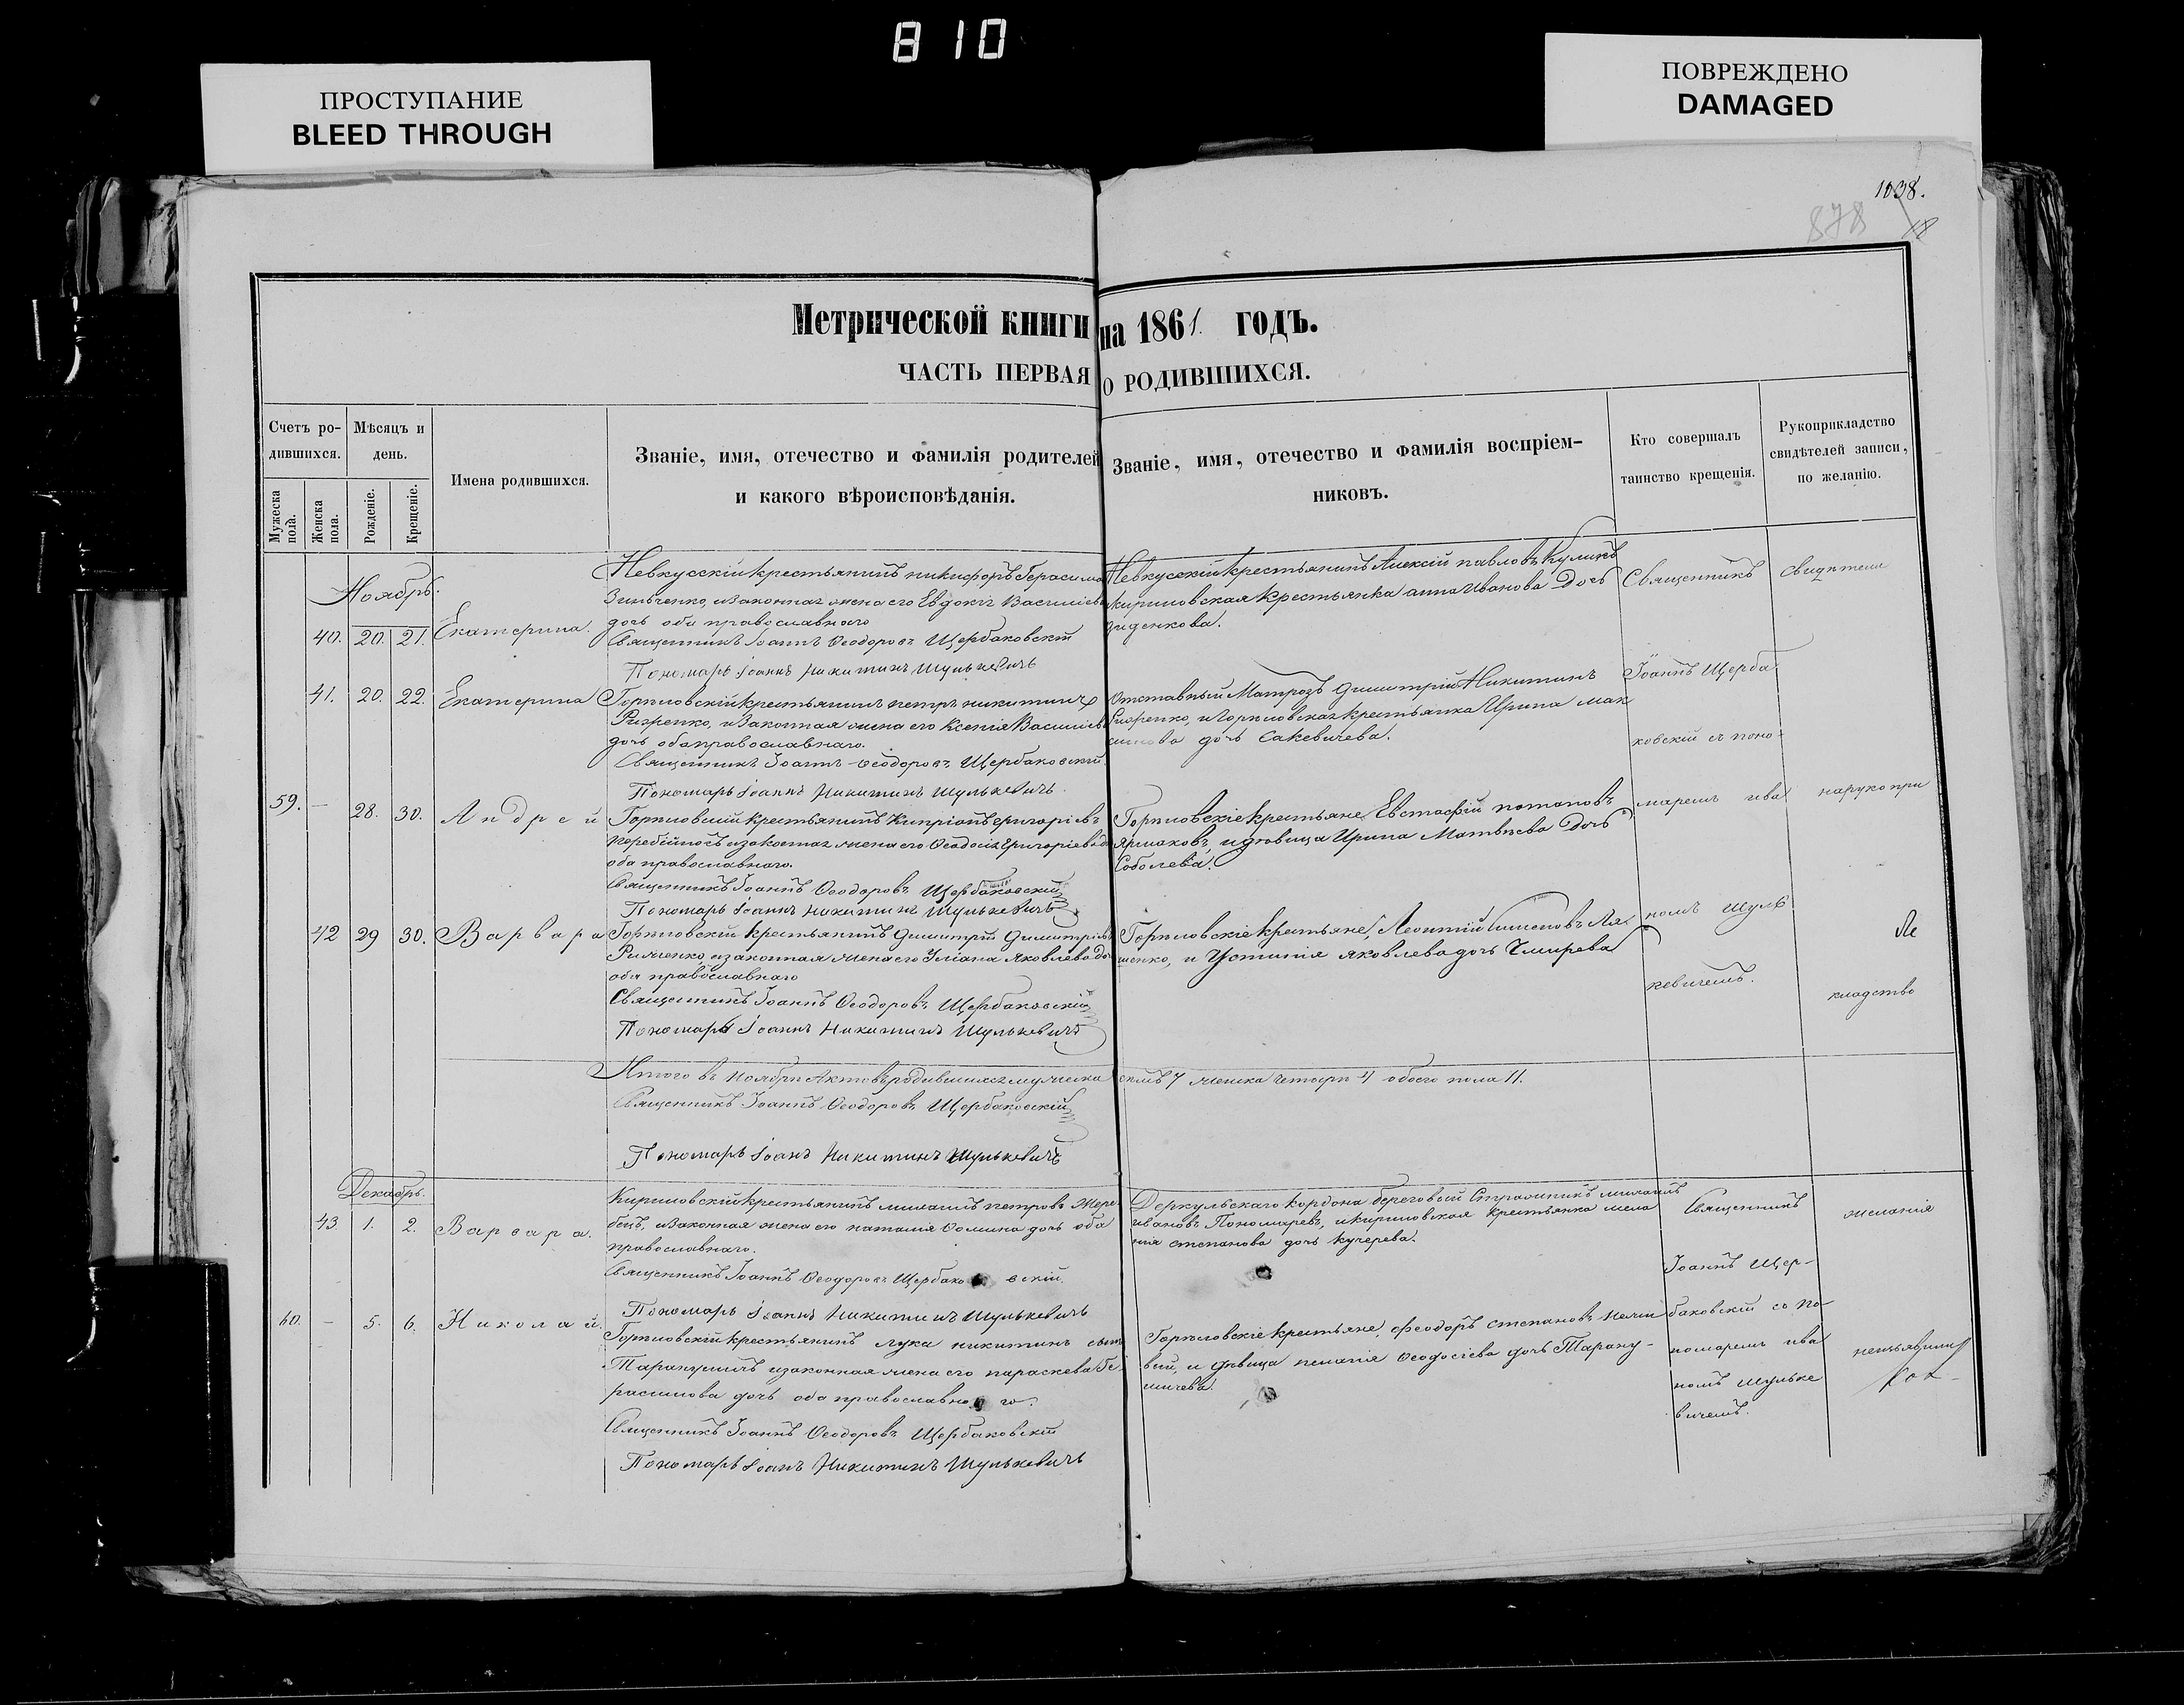 810
ПРОСТУПАНИЕ
BLEED THROUGH
ПОВРЕЖДЕНО
DAMAGED
1038.
878
18
Метрической книги на 1861. годъ.
ЧАСТЬ ПЕРВАЯ О РОДИВШИХСЯ.
Счетъ ро-
дившихся.
Мѣсяцъ и
день.
Мужеска
пола.
Женска
пола.
Рожденіе.
Крещеніе.
Имена родившихся.
Званіе, имя, отечество и фамилія родителей
и какого вѣроисповѣданія.
Званіе, имя, отечество и фамилія воспріем-
никовъ.
Кто совершалъ
таинство крещенія.
Рукоприкладство
свидѣтелей записи,
по желанію.
Ноябрь.
40. 20. 21. Екатерина.
крестьянинъ никифоръ Герасимо
Зинченко, изаконная жена его Евдокія Василіев
дочь оба православнаго
Священникъ Іоаннъ Ѳеодоровъ Щербаковскій
Пономарь Іоаннъ Никитинъ Шулькевичъ
крестьянинъ Алексій павловъ Куликъ
икириловская крестьянка анна Иванова Дочь
Диденкова.
Священникъ
Свидѣтели
41. 20. 22. Екатерина
крестьянинъ петръ никитинъ
изаконная жена его Ксенія Василіев
дочь оба православнаго.
Священникъ Іоаннъ Ѳеодоровъ Щербаковскій
Пономарь Іоаннъ Никитинъ Шулькевичъ.
Отставный Матрозъ Димитрій Никитинъ
крестьянка Ирина Мак
симова дочь Сакевичева.
Іоаннъ Щерба
ковскій съ поно-
59. — 28. 30. Андрей
крестьянинъ Кипріанъ григоріевъ
изаконная жена его Ѳеодосія Григоріева до
оба православнаго.
Священникъ Іоаннъ Ѳеодоровъ Щербаковскій
Пономарь Іоаннъ Никитинъ Шулькевичъ
крестьяне, Евстафій потаповъ
Ярмаковъ, идѣвица Ирина Матвѣева Дочь
Соболева.
маремъ ива
нарукопри
42 29 30. Варвара
крестьянинъ Димитрій Димитріевъ
изаконная жена его Уліана Яковлева до
оба православнаго
Священникъ Іоаннъ Ѳеодоровъ Щербаковскій
Пономарь Іоаннъ Никитинъ Шулькевичъ
крестьяне, Леонтій Симеоновъ Ля
шенко, и Устинія яковлева дочь Чмирева
номъ Шуль
кевичемъ.
кладство
Итого въ Ноябри Актовъ родившихся мужеска семь 7 женска четыри 4 обоего пола 11.
Священникъ Іоаннъ Ѳеодоровъ Щербаковскій
Пономарь Іоанъ Никитинъ Шулькевичъ
Декабрь.
43 1. 2. Варвара.
Кириловскій крестьянинъ михаилъ петровъ Жере
бецъ, изаконная жена его наталія Ѳомина дочь оба
православнаго.
Священникъ Іоаннъ Ѳеодоровъ Щербаковскій.
Пономарь Іоаннъ Никитинъ Шулькевичъ
Деркульскаго кордона береговый Стражникъ михаилъ
ивановъ Пономаревъ, икириловская крестьянка мела
нія степанова дочь кучерева.
Священникъ
Іоаннъ Щер-
желанія
60. — 5. 6. Николай.
крестьянинъ лука никитинъ сынъ
изаконная жена его параскева Ге
расимова дочь оба православнаго.
Священникъ Іоаннъ Ѳеодоровъ Щербаковскій
Пономарь Іоанъ Никитинъ Шулькевичъ
крестьяне, Ѳеодоръ степановъ
вый, и дѣвица пелагія Ѳеодосіева дочь Тарану-
баковскій съ по
номаремъ ива
номъ Шульке
вичемъ.
неизъявили